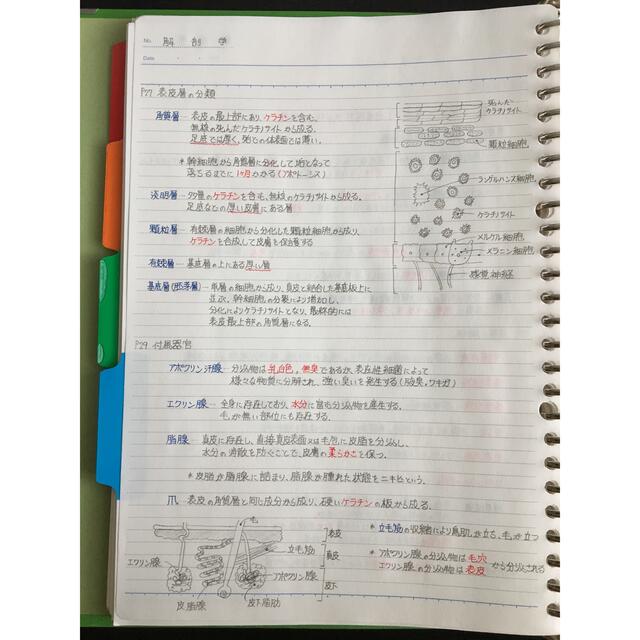 No. 解剖学
Date
P27 表皮層の分類
角質層 … 表皮の最上部にあり、ケラチンを含む。
無核の死んだケラチノサイトから成る。
足底では厚く、他での体表面では薄い。
* 幹細胞から角質層に分化して垢となって
落ちるまでに1ヶ月かかる(アポトーシス)
淡明層 … 多量のケラチンを含む、無核のケラチノサイトから成る。
足底などの厚い皮膚にある層
顆粒層 … 有棘層の細胞から分化した顆粒細胞から成り、
ケラチンを合成して皮膚を保護する
有棘層 … 基底層の上にある厚い層
基底層(胚芽層) … 単層の細胞から成り、真皮と結合した基底板上に
並ぶ。幹細胞の分裂により増加し、
分化によりケラチサイトとなり、最終的には
表皮最上部の角質層になる。
死んだ
ケラチノサイト
顆粒細胞
ランゲルハンス細胞
ケラチノサイト
メルケル細胞
メラニン細胞
感覚神経
P29 付属器官
アポクリン汗腺 … 分泌物は乳白色、無臭であるが、表在性細菌によって
様々な物質に分解され、強い臭いを発生する(腋臭、ワキガ)
エクリン腺 … 全身に存在しており、水分に富む分泌物を産生する。
毛が無い部位にも存在する。
脂腺 … 真皮に存在し、直接真皮表面又は毛包に皮脂を分泌し、
水分の消散を防ぐことで、皮膚の柔らかさを保つ。
* 皮脂が脂腺に詰まり、脂腺が腫れた状態をニキビという。
爪 … 表皮の角質層と同じ成分から成り、硬いケラチンの板から成る。
毛
エクリン腺
立毛筋
アポクリン腺
皮脂腺
皮下脂肪
表皮
真皮
皮下
* 立毛筋の収縮により鳥肌が立ち、毛が立つ
* アポクリン腺の分泌物は毛穴
エクリン腺の分泌物は表皮 から分泌される